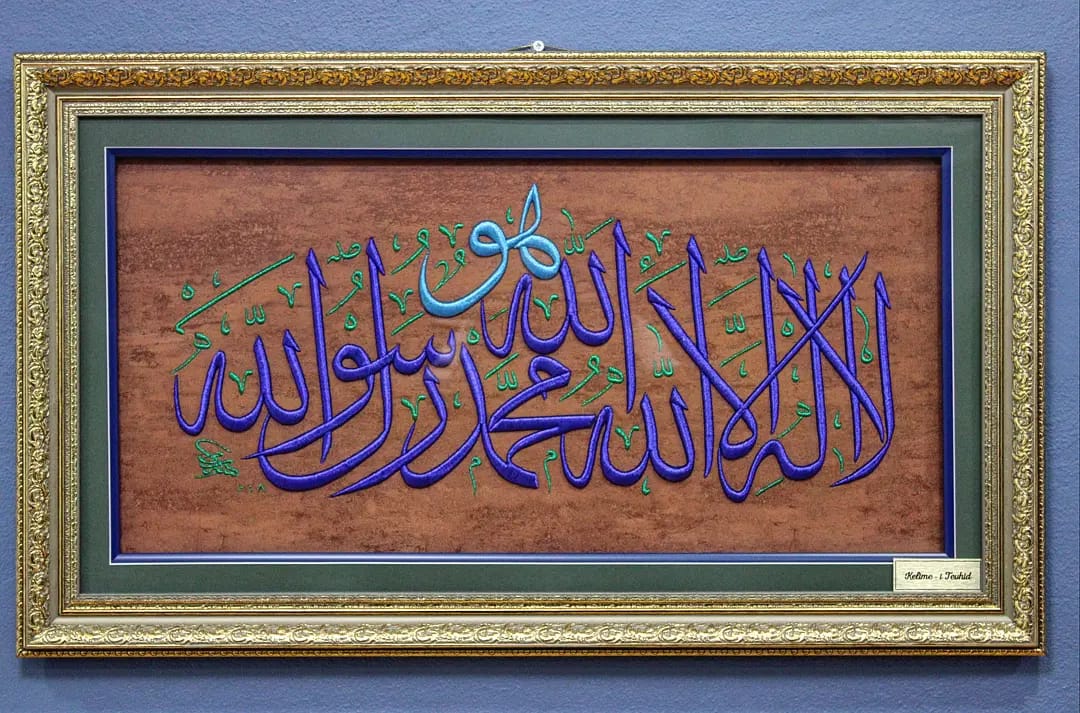 هو
الله
لا اله الا الله محمد رسول الله
Kelime - i Tevhid